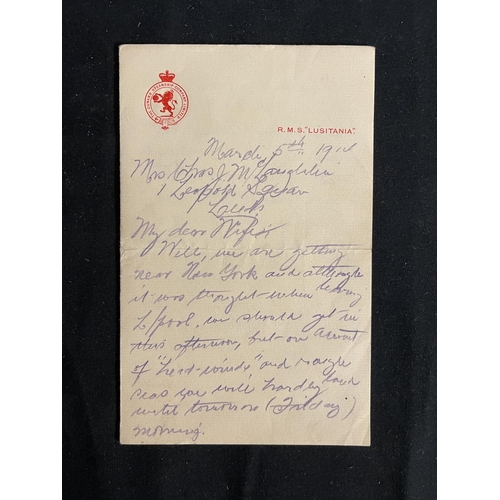 THE CUNARD STEAMSHIP COMPANY LIMITED
R.M.S. "LUSITANIA".
March 5th 1914
Mrs Thos J. McLaughlin
1 Leopold Square
Leeds
My dear Wife
Well, we are getting
near New York and although
it was thought when leaving
L/pool, we should get in
this afternoon, but on account
of "head-winds" and rough
seas we will hardly land
until tomorrow (Friday)
morning.